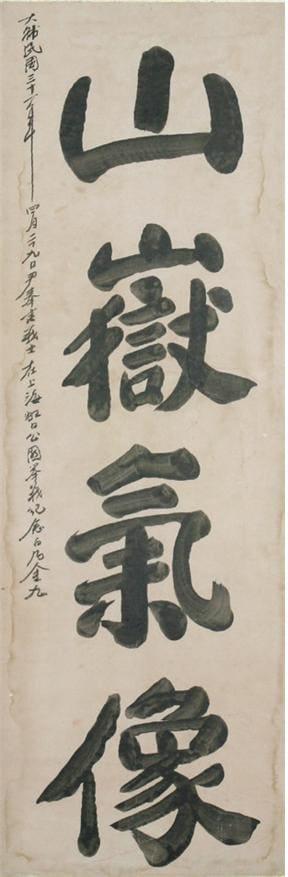 山嶽氣像
大韓民國三十一年四月二十九日尹奉吉義士在上海虹口公園擧義紀念白凡金九